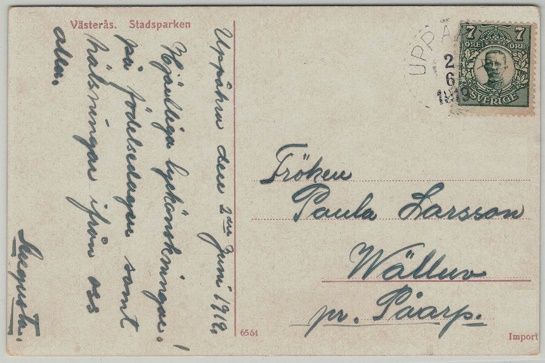 Västerås. Stadsparken
Uppåkra den 2en Juni 1919.
Hjärtliga lyckönskningar!
på födelsedagen samt
hälsningar ifrån oss
alla.
Augusta.
UPPÅ
2
6
7 7
ÖRE ÖRE
SVERIGE
Fröken
Paula Larsson
pr. Påarp.
6564
Import